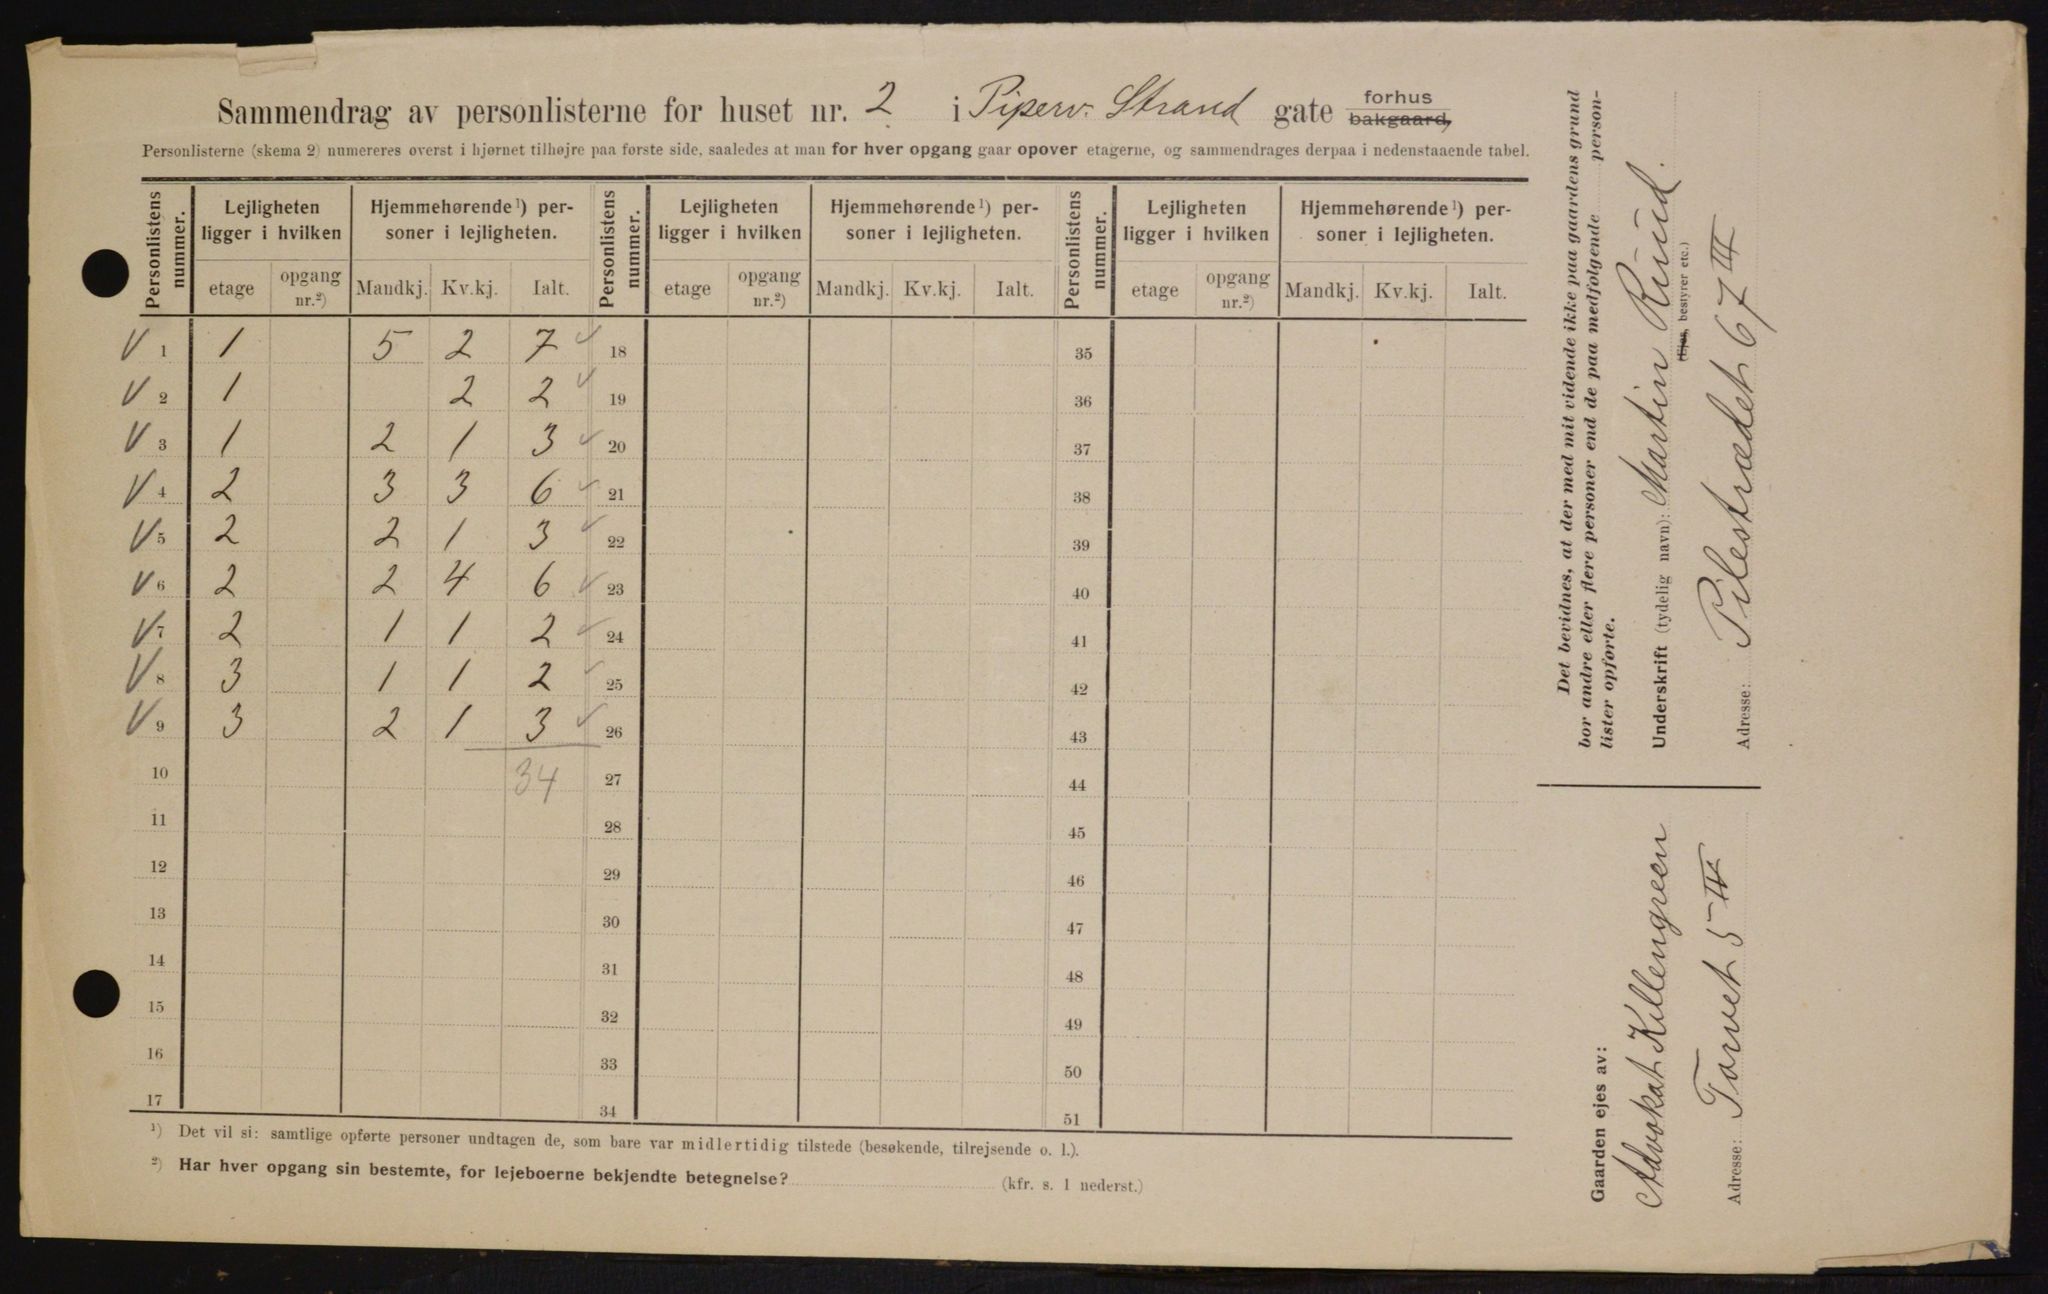 Sammendrag av personlisterne for huset nr. 2 i Piperv. Strand gate forhus bakgaard,
Personlisterne (skema 2) numereres øverst i hjørnet tilhøjre paa første side, saaledes at man for hver opgang gaar opover etagerne, og sammendrages derpaa i nedenstaaende tabel.
Personlistens nummer. Lejligheten ligger i hvilken Hjemmehørende ¹) personer i lejligheten. Personlistens nummer. Lejligheten ligger i hvilken Hjemmehørende ¹) personer i lejligheten. Personlistens nummer. Lejligheten ligger i hvilken Hjemmehørende ¹) personer i lejligheten.
etage opgang nr.²) Mandkj. Kv.kj. Ialt. etage opgang nr.²) Mandkj. Kv.kj. Ialt. etage opgang nr.²) Mandkj. Kv.kj. Ialt.
V 1 1 5 2 7 ✓ 18 35
V 2 1 2 2 ✓ 19 36
V 3 1 2 1 3 ✓ 20 37
V 4 2 3 3 6 ✓ 21 38
V 5 2 2 1 3 ✓ 22 39
V 6 2 2 4 6 ✓ 23 40
V 7 2 1 1 2 ✓ 24 41
V 8 3 1 1 2 ✓ 25 42
V 9 3 2 1 3 ✓ 26 43
10 34 27 44
11 28 45
12 29 46
13 30 47
14 31 48
15 32 49
16 33 50
17 34 51
¹) Det vil si: samtlige opførte personer undtagen de, som bare var midlertidig tilstede (besøkende, tilrejsende o. l.).
²) Har hver opgang sin bestemte, for lejeboerne bekjendte betegnelse? (kfr. s. 1 nederst.)
Det bevidnes, at der med mit vidende ikke paa gaardens grund
bor andre eller flere personer end de paa medfølgende person-
lister opførte.
Underskrift (tydelig navn): Martin Ruud.
(Ejer, bestyrer etc.)
Adresse: Pilestrædet 67 III
Gaarden ejes av:
Advokat Killengreen
Adresse: Torvet 5 IV